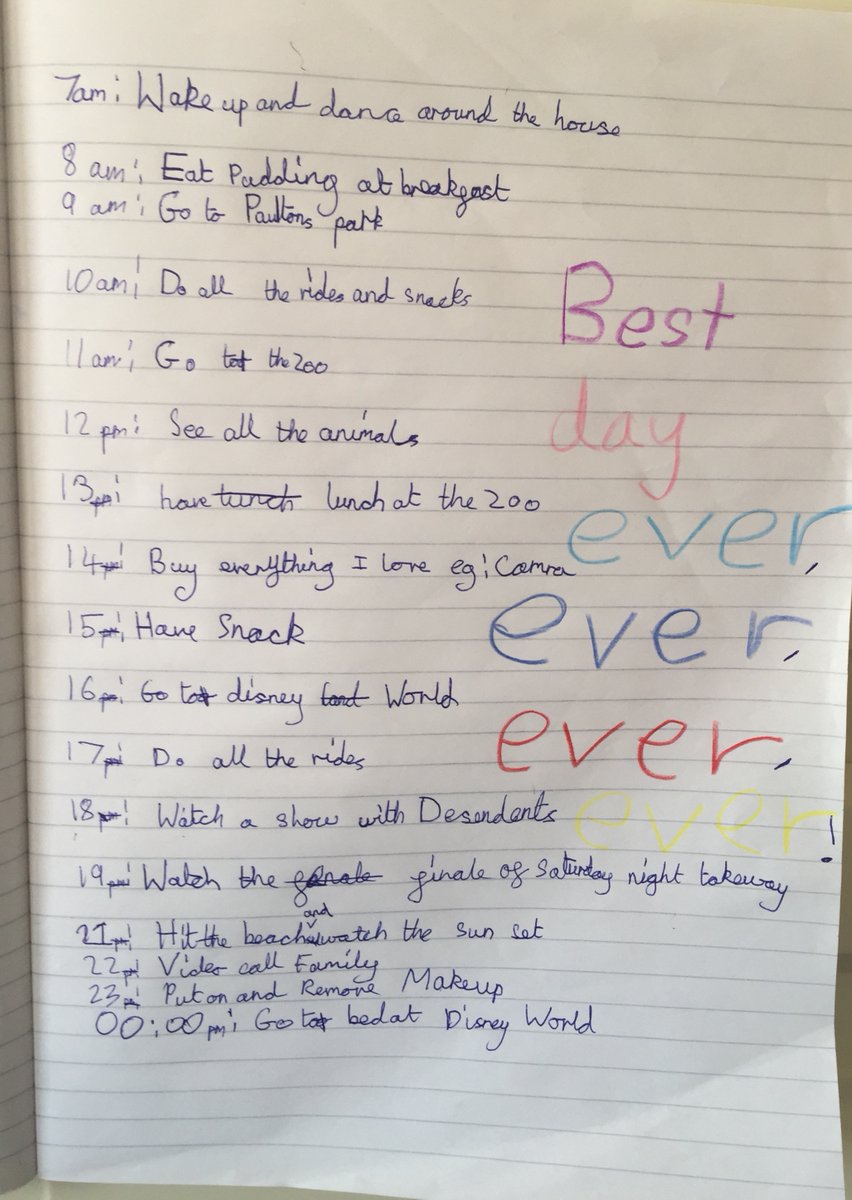 7am: Wake up and dance around the house
8 am: Eat Pudding at breakgast
9 am: Go to Paultons park
10am: Do all the rides and snacks
11am: Go to the zoo
12 pm: See all the animals
13pm: have lunch lunch at the zoo
14pm: Buy everything I love eg: Camra
15pm: Have Snack
16pm: Go to disney land World
17pm: Do all the rides
18pm: Watch a show with Desendents
19pm: Watch the ginale of Saturday night takeway
21pm: Hit the beach and watch the sun set
22pm: Video call Family
23pm: Put on and Remove Makeup
00:00pm: Go to bed at Disney World
Best
day
ever,
ever,
ever,
ever!